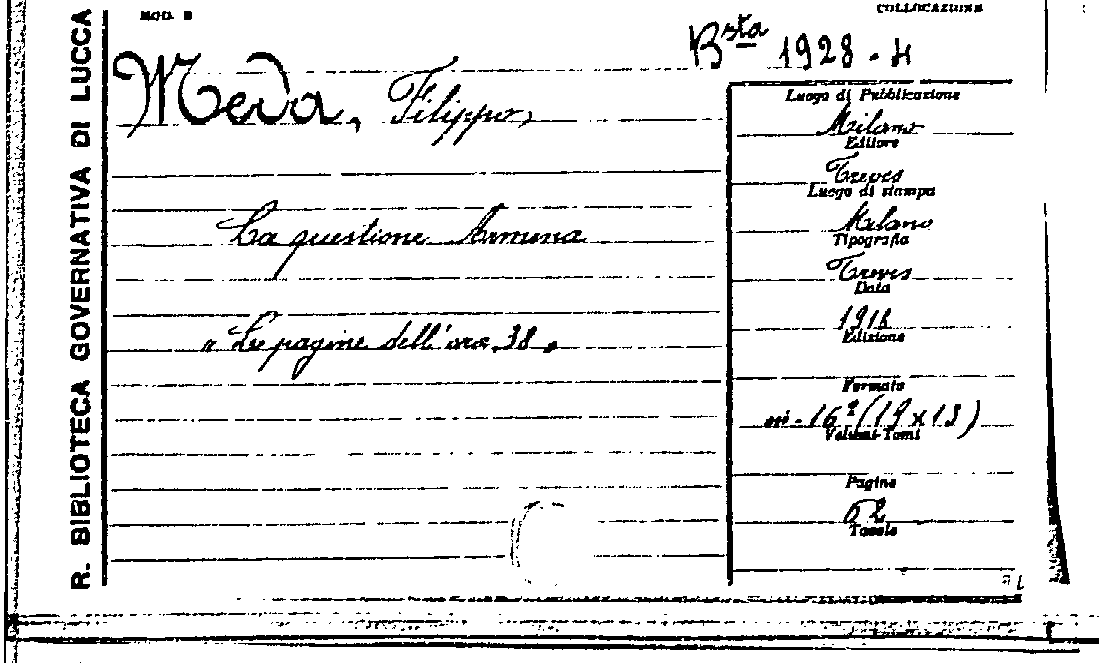 MOD. B
COLLOCAZIONE
Bsta 1928 - 4
R. BIBLIOTECA GOVERNATIVA DI LUCCA
Meda, Filippo,
La questione Armena
« Le pagine dell'ora. 38 »
Luogo di Pubblicazione
Milano
Editore
Treves
Luogo di stampa
Milano
Tipografia
Treves
Data
1918
Edizione
Formato
in-16º (19 x 13)
Volumi-Tomi
Pagine
62
Tavole